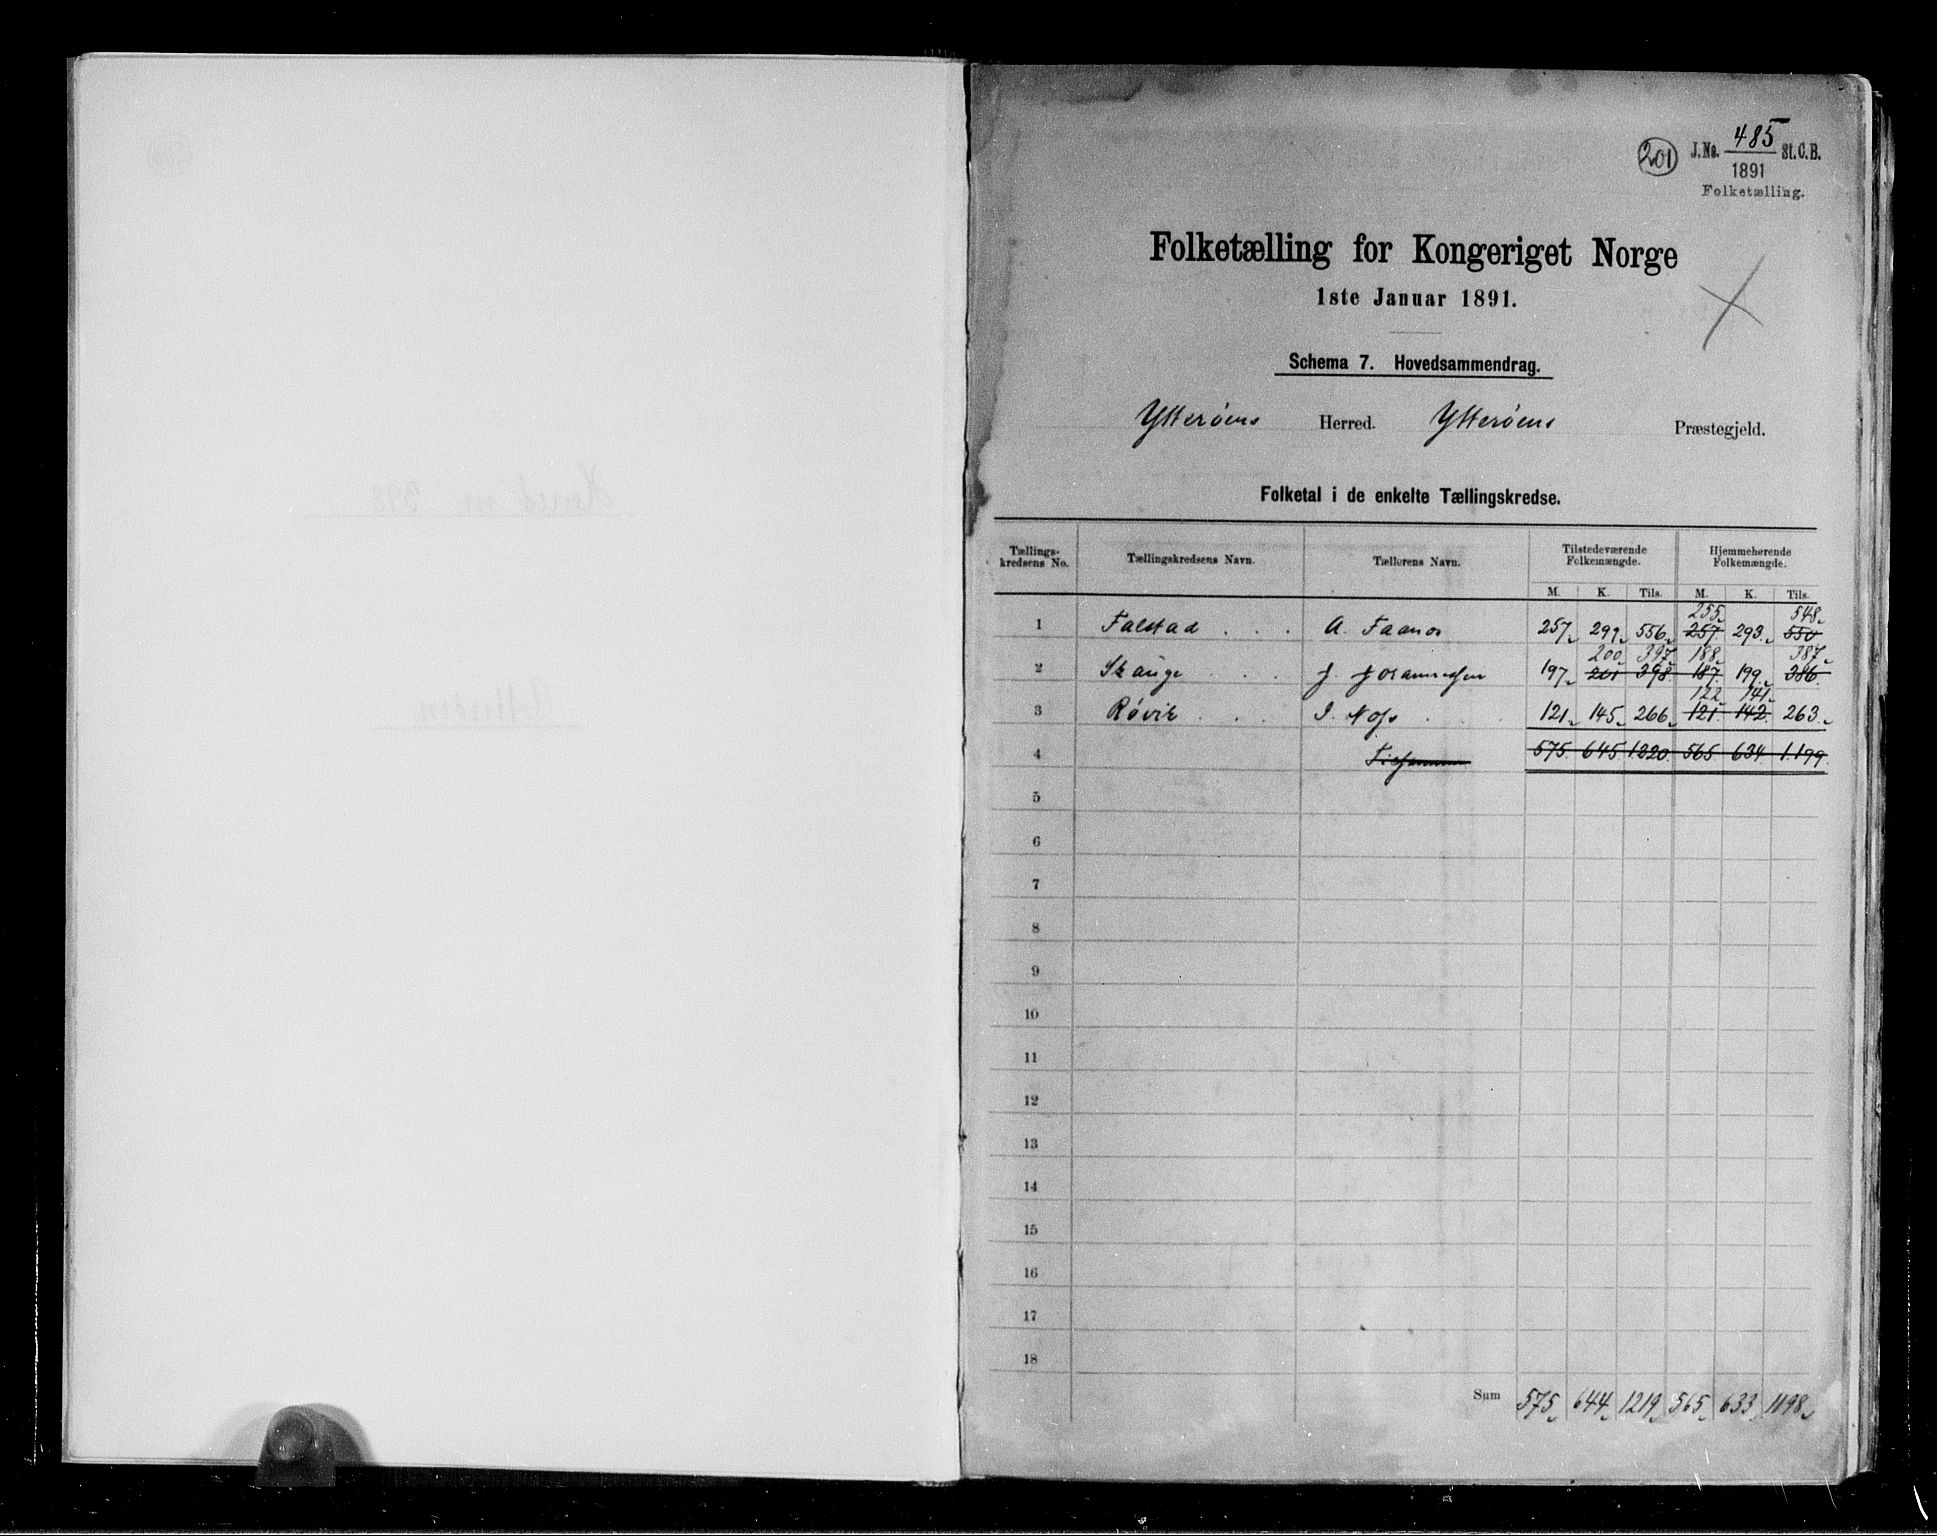 201 J.No. 485 St.C.B.
1891
Folketælling.
Folketælling for Kongeriget Norge
1ste Januar 1891.
Schema 7. Hovedsammendrag.
Ytterøens Herred. Ytterøens Præstegjeld.
Folketal i de enkelte Tællingskredse.
Tællings-kredsens No. Tællingskredsens Navn. Tællerens Navn. Tilstedeværende Folkemængde. Hjemmehørende Folkemængde.
M. K. Tils. M. K. Tils.
255 548
1 Falstad . . . A. 257 299 556 257 293 550
200 397 188 387
2 Skauge . . . J. 197 201 398 187 199 386
122 141
3 Røvik . . . 121 145 266 121 142 263
4 575 645 1220 565 634 1.199
5
6
7
8
9
10
11
12
13
14
15
16
17
18
Sum 575 644 1219 565 633 1198